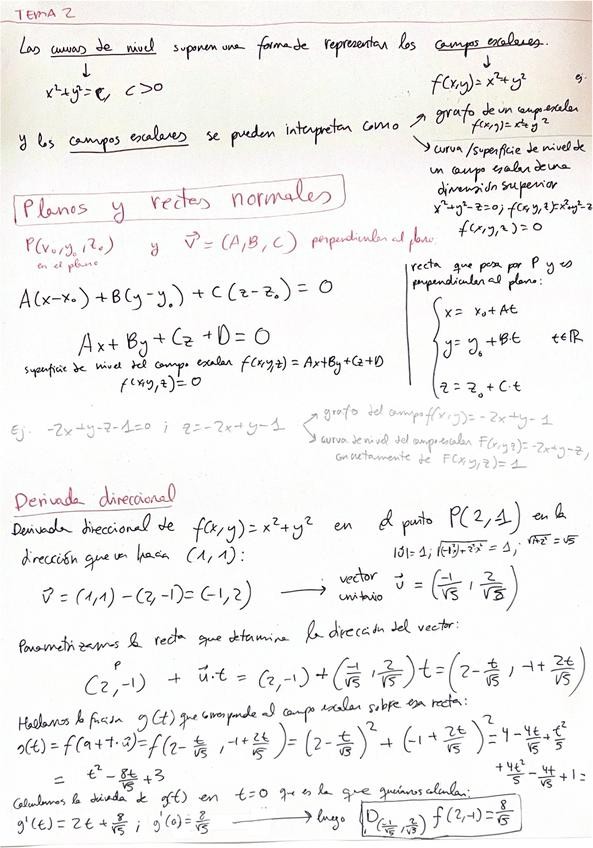 TEMA 2
Las curvas de nivel suponen una forma de representar los campos escalares.
↓ ↓
x²+y²=c, c>0 f(x,y)=x²+y² ej.
y los campos escalares se pueden interpretar como
↗ grafo de un campo escalar
f(x,y)=x²+y²
↘ curva/superficie de nivel de
un campo escalar de una
dimensión superior
x²+y²-z=0; f(x,y,z)=x²+y²-z
f(x,y,z)=0
Planos y rectas normales
P(x₀,y₀,z₀) y v⃗=(A,B,C) perpendicular al plano.
en el plano
A(x-x₀)+B(y-y₀)+C(z-z₀)=0
Ax+By+Cz+D=0
superficie de nivel del campo escalar f(x,y,z)=Ax+By+Cz+D
f(x,y,z)=0
recta que pasa por P y es
perpendicular al plano:
x= x₀+At
y= y₀+B·t t∈ℝ
z= z₀+C·t
Ej. -2x+y-z-1=0 ; z=-2x+y-1
↗ grafo del campo f(x,y)=-2x+y-1
↘ curva de nivel del campo escalar F(x,y,z)=-2x+y-z,
concretamente de F(x,y,z)=1
Derivada direccional
Derivada direccional de f(x,y)=x²+y² en el punto P(2,1) en la
dirección que va hacia (1,1):
v⃗=(1,1)-(2,-1)=(-1,2) ⟶ vector unitario u⃗=(-1/√5, 2/√5)
Parametrizamos la recta que determina la dirección del vector:
P
(2,-1) + u⃗·t = (2,-1)+(-1/√5, 2/√5)t=(2-t/√5, -1+2t/√5)
Hallamos la función g(t) que corresponde al campo escalar sobre esa recta:
g(t)=f(a+t·u⃗)=f(2-t/√5, -1+2t/√5)=(2-t/√5)²+(-1+2t/√5)²=4-4t/√5+t²/5
+4t²/5-4t/√5+1=
= t²-8t/√5+3
Calculamos la derivada de g(t) en t=0 que es la que queríamos calcular:
g'(t)=2t+8/√5 ; g'(0)=8/√5 ⟶ luego D(-1/√5, 2/√5) f(2,-1)=8/√5